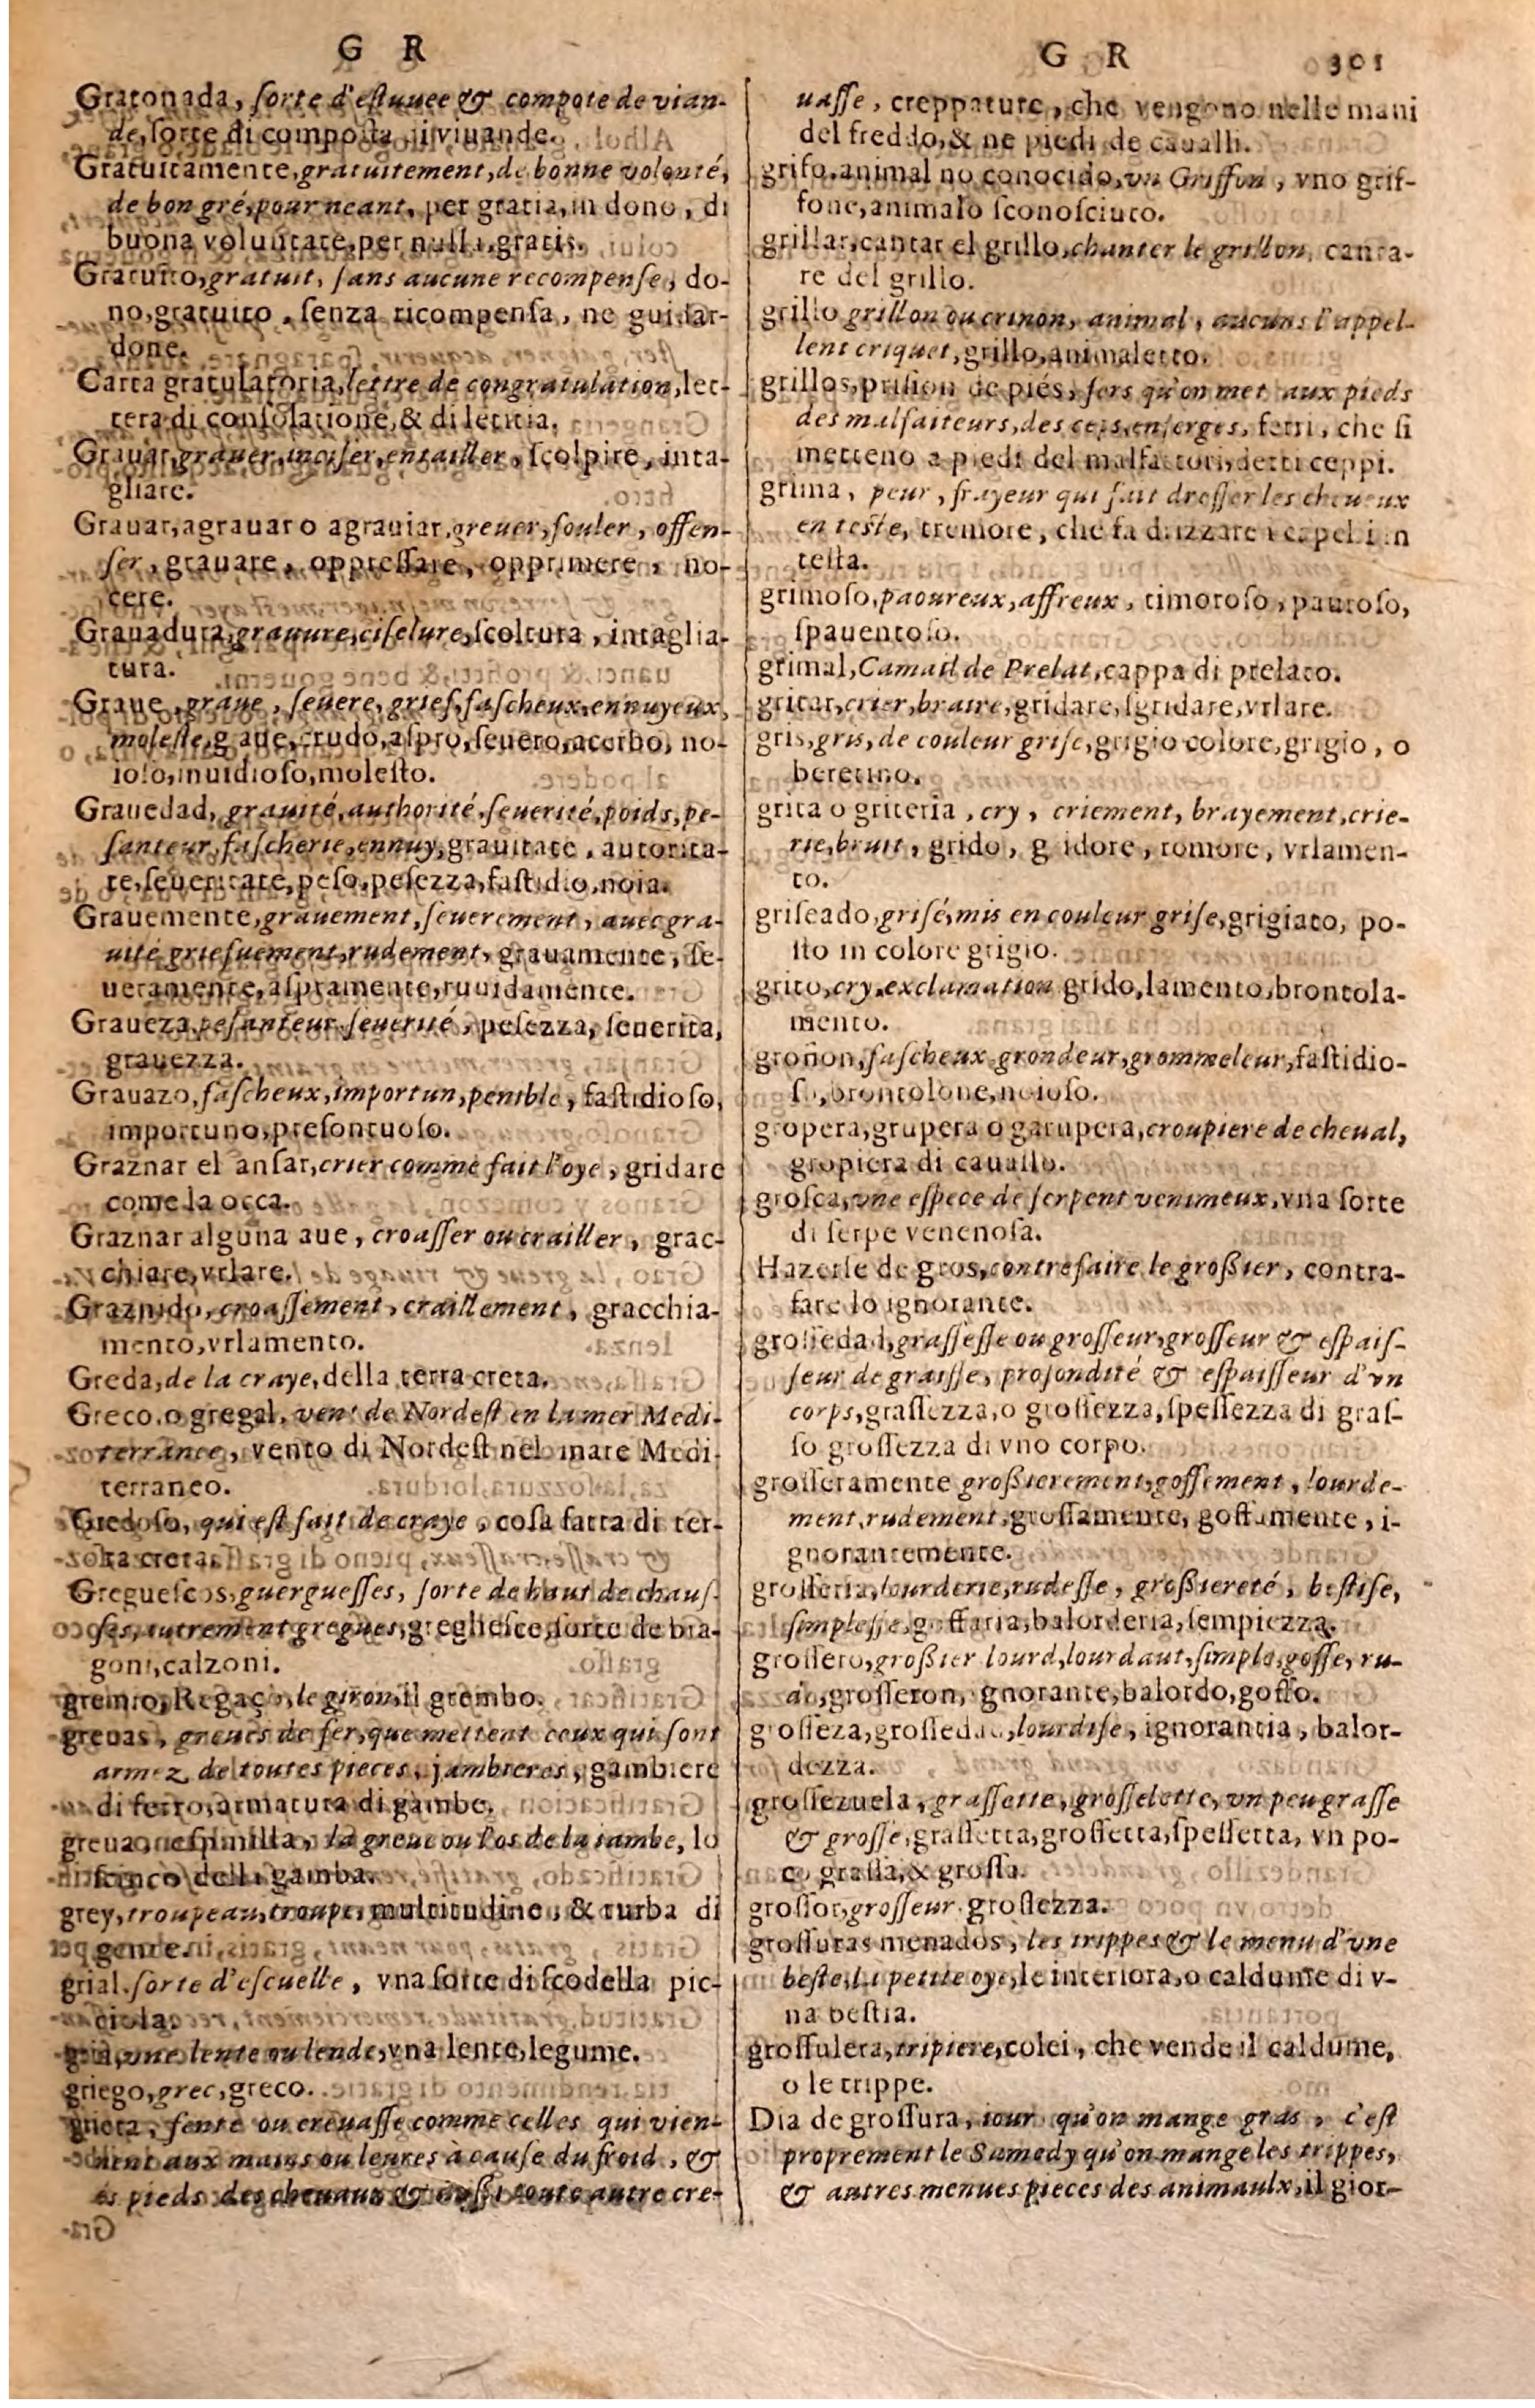 G R
Gratonada, ſorte d'eſtuuee & compote de vian-
de, ſorte di compoſta di viuande.
Gratuitamente, gratuitement, de bonne volonté,
de bon gré, pour neant, per gratia, in dono, di
buona voluntate, per nulla, gratis.
Gratuito, gratuit, ſans aucune recompenſe, do-
no, gratuito, ſenza ricompenſa, ne guidar-
done.
Carta gratulatoria, lettre de congratulation, let-
tera di conſolatione, & di letitia.
Grauar, grauer, inciſer, entailler, ſcolpire, inta-
gliare.
Grauar, agrauar o agrauiar, greuer, fouler, offen-
ſer, grauare, oppreſſare, opprimere, no-
cere.
Grauadura, grauure, ciſelure, ſcoltura, intaglia-
tura.
Graue, graue, ſeuere, grief, faſcheux, ennuyeux,
moleſte, g aue, crudo, aſpro, ſeuero, acerbo, no-
ioſo, inuidioſo, moleſto.
Grauedad, grauité, authorité, ſeuerité, poids, pe-
ſanteur, faſcherie, ennuy, grauitate, autorita-
te, ſeueritate, peſo, peſezza, faſtidio, noia.
Grauemente, grauement, ſeuerement, auec gra-
uité griefuement, rudement, grauamente, ſe-
ueramente, aſpramente, ruuidamente.
Graueza, peſanteur, ſeuerité, peſezza, ſeuerita,
grauezza.
Grauazo, faſcheux, importun, penible, faſtidioſo,
importuno, preſontuoſo.
Graznar el anſar, crier comme fait l'oye, gridare
come la occa.
Graznar alguna aue, croaſſer ou crailler, grac-
chiare, vrlare.
Graznido, croaſſement, craillement, gracchia-
mento, vrlamento.
Greda, de la craye, della terra creta.
Greco, o gregal, vent de Nordeſt en la mer Medi-
terrance, vento di Nordeſt nel mare Medi-
terraneo.
Gredoſo, qui eſt fait de craye, coſa fatta di ter-
ra creta.
Gregueſcos, guergueſſes, ſorte de haut de chauſ-
ſes, autrement gregues, greghesce, ſorte de bra-
goni, calzoni.
gremio, Regaço, le giron, il grembo.
greuas, greues de fer, que mettent ceux qui ſont
armez de toutes pieces, jambieres, gambiere
di ferro, armatura di gambe.
greua, o eſpinilla, la greue ou l'os de la iambe, lo
ſtinco della gamba.
grey, troupeau, troupe, multitudine, & turba di
gente.
grial, ſorte d'eſcuelle, vna ſorte di ſcodella pic-
ciola.
gria, vne lente ou lende, vna lente, legume.
griego, grec, greco.
grieta, fente ou creuaſſe comme celles qui vien-
nent aux mains ou leures à cauſe du froid, &
és pieds des cheuaux & auſſi toute autre cre-
G R 301
uaſſe, creppature, che vengono nelle mani
del freddo, & ne piedi de caualli.
grifo, animal no conocido, vn Griffon, vno grif-
fone, animalo ſconoſciuto.
grillar, cantar el grillo, chanter le grillon, canta-
re del grillo.
grillo grillon ou crinon, animal, aucuns l'appel-
lent criquet, grillo, animaletto.
grillos, priſion de piés, fers qu'on met aux pieds
des malfaiteurs, des ceps, enferges, ferri, che ſi
metteno a piedi del malfattori, detti ceppi.
grima, peur, frayeur qui fait dreſſer les cheueux
en teſte, tremore, che fa drizzare i capelli in
teſta.
grimoſo, paoureux, affreux, timoroſo, pauroſo,
ſpauentoſo.
grimal, Camail de Prelat, cappa di prelato.
gritar, crier, braire, gridare, ſgridare, vrlare.
gris, gris, de couleur griſe, grigio colore, grigio, o
beretino.
grita o griteria, cry, criement, brayement, crie-
rie, bruit, grido, g idore, romore, vrlamen-
to.
griſeado, griſé, mis en couleur griſe, grigiato, po-
ſto in colore grigio.
grito, cry, exclamation grido, lamento, brontola-
mento.
groñon, faſcheux grondeur, grommeleur, faſtidio-
ſo, brontolone, noioſo.
gropera, grupera o garupera, croupiere de cheual,
gropiera di cauallo.
groſca, vne eſpece de ſerpent venimeux, vna ſorte
di ſerpe venenoſa.
Hazerſe de gros, contrefaire le groſsier, contra-
fare lo ignorante.
groſſedad, graſſeſſe ou groſſeur, groſſeur & eſpaiſ-
ſeur de graiſſe, profondité & eſpaiſſeur d'vn
corps, graſſezza, o groſſezza, ſpeſſezza di graſ-
ſo groſſezza di vno corpo.
groſſeramente groſsierement, goffement, lourde-
ment, rudement, groſſamente, goffamente, i-
gnorantemente.
groſſeria, lourderie, rudeſſe, groſsiereté, beſtiſe,
ſimpleſſe, goffaria, balorderia, ſempiezza.
groſſero, groſsier lourd, lourdaut, ſimple, goffe, ru-
de, groſſeron, ignorante, balordo, goffo.
groſſeza, groſſedad, lourdiſe, ignorantia, balor-
dezza.
groſſezuela, graſſette, groſſelette, vn peu graſſe
& groſſe, graſſetta, groſſetta, ſpeſſetta, vn po-
co graſſa, & groſſa.
groſſor, groſſeur groſſezza.
groſſuras menados, les trippes & le menu d'vne
beſte, la petite oye, le interiora, o caldume di v-
na beſtia.
groſſulera, tripiere, colei, che vende il caldume,
o le trippe.
Dia de groſſura, iour qu'on mange gras, c'eſt
proprement le Samedy qu'on mange les trippes,
& autres menues pieces des animaulx, il gior-